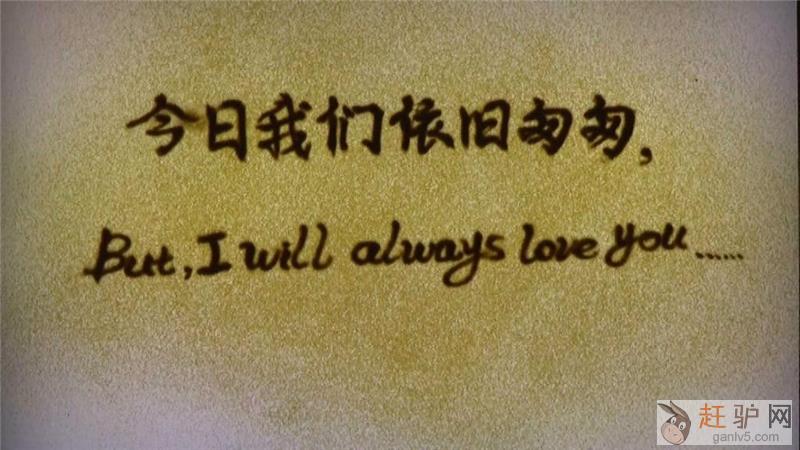 今日我们依旧匆匆,
But, I will always love you......
赶驴网
ganlv5.com